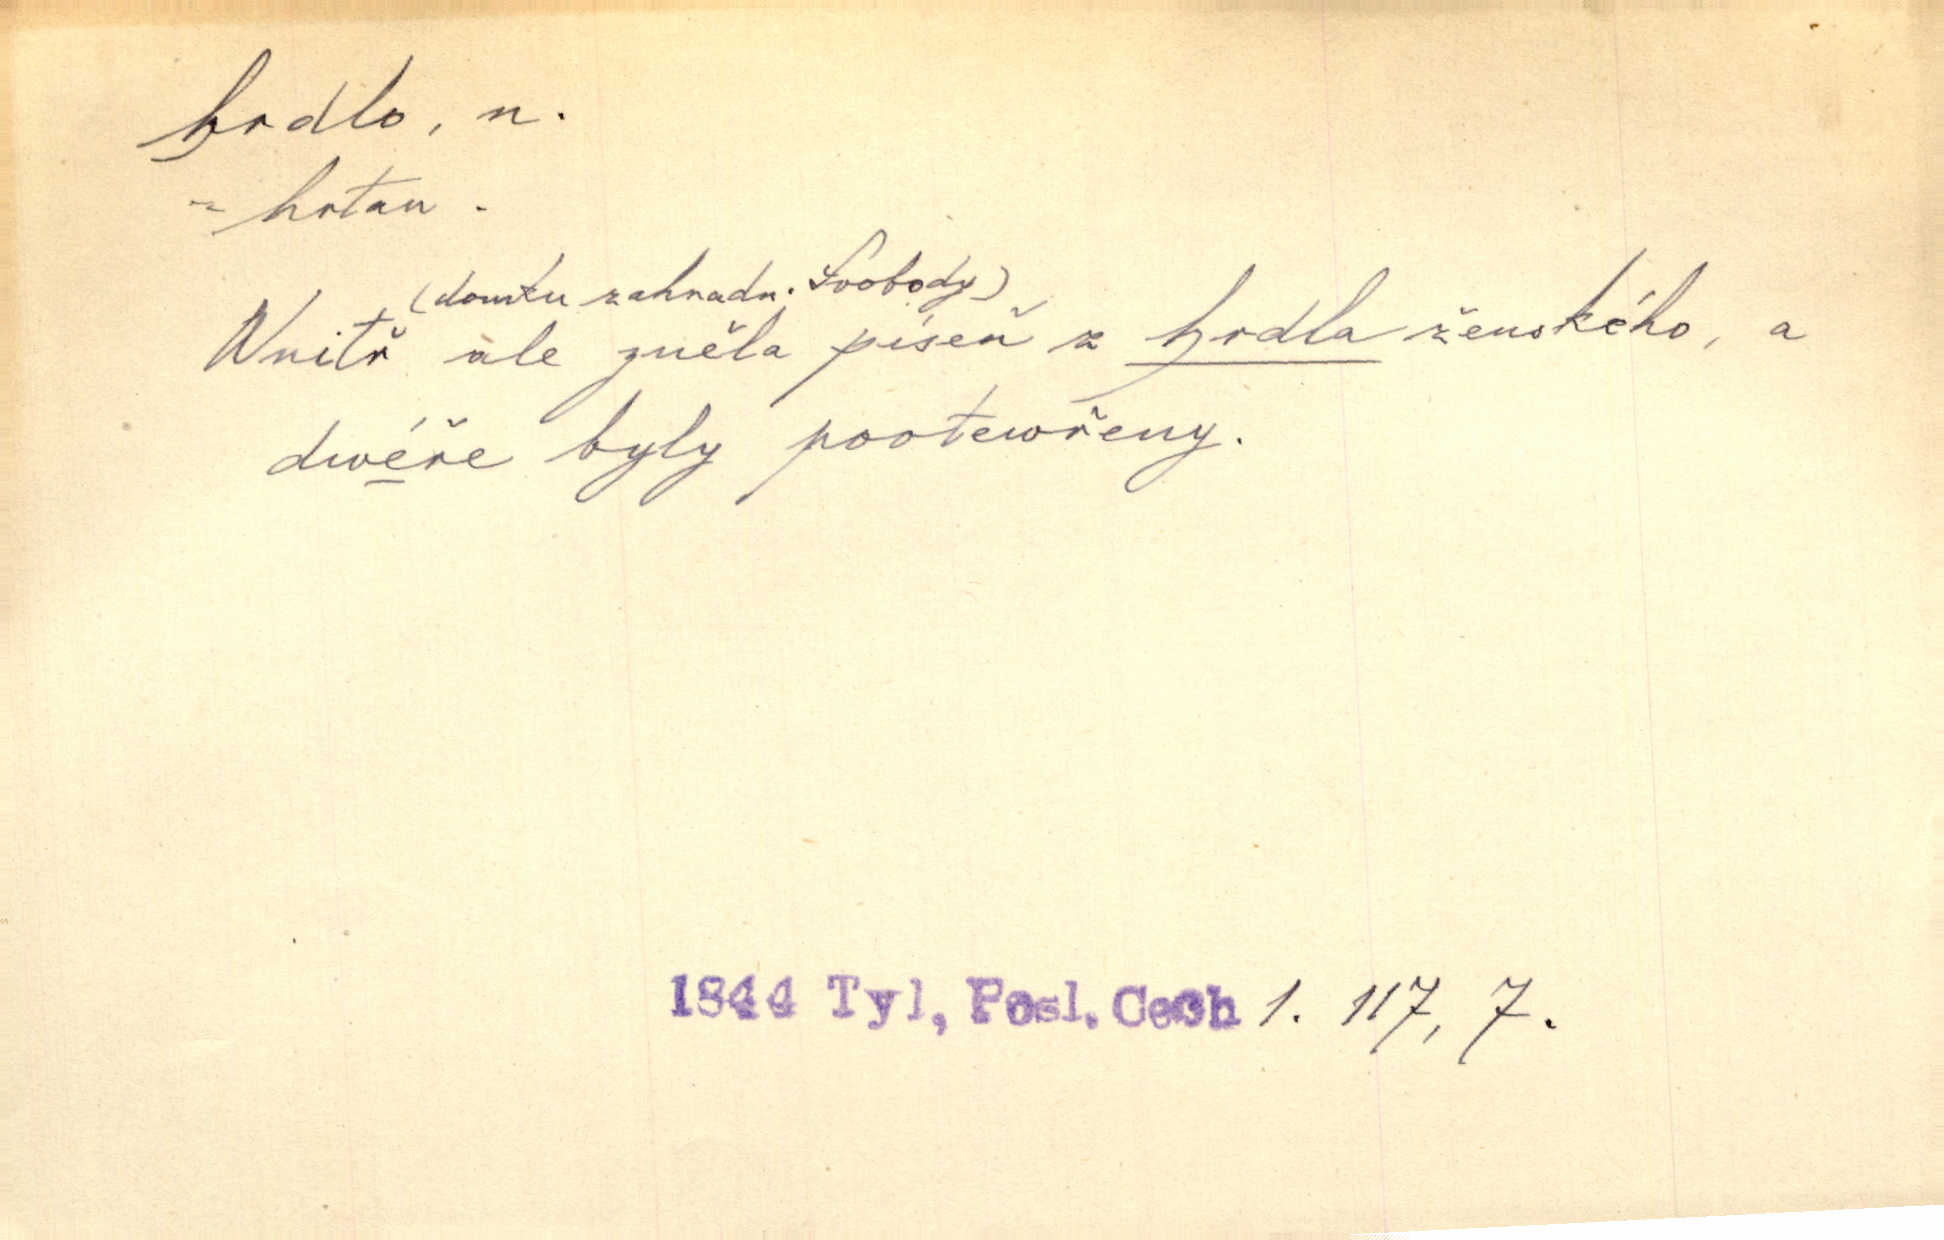 hrdlo, n.
= hrtan.
(domku zahradn. Svobody)
Wnitř ale zněla píseň z hrdla ženského, a
dwéře byly pootewřeny.
1844 Tyl, Posl. Cech 1. 117, 7.